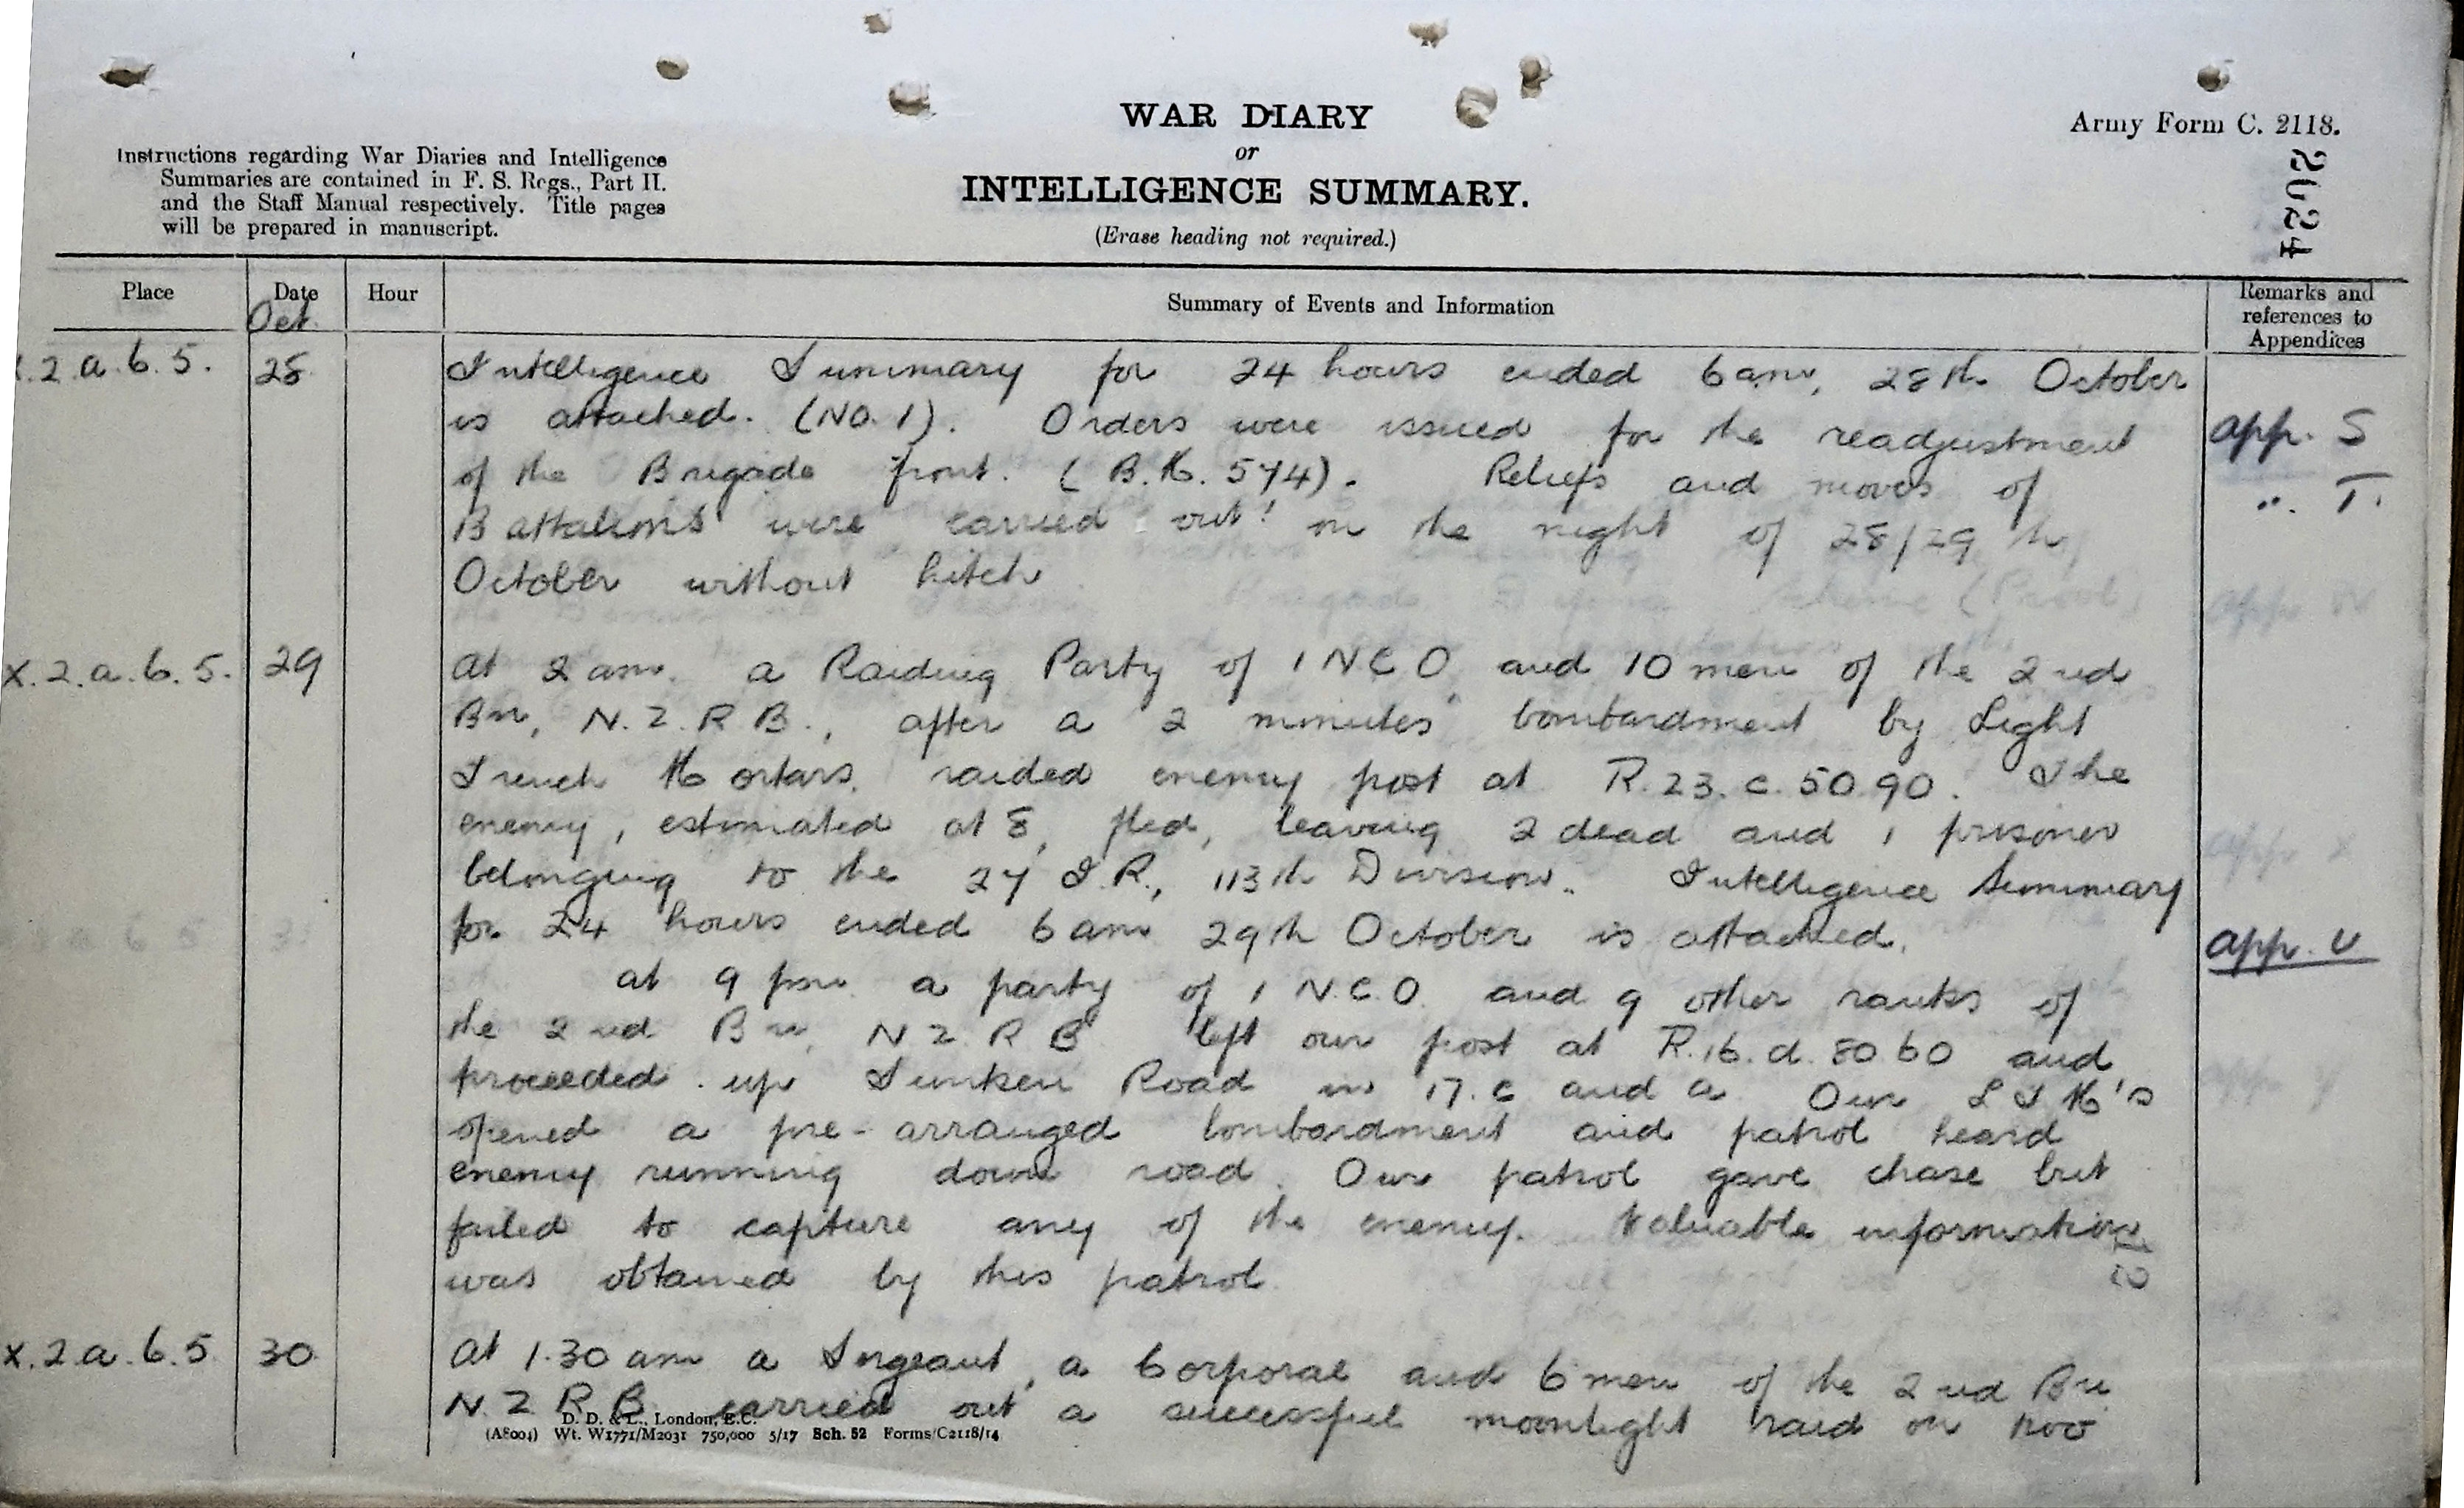 WAR DIARY
or
INTELLIGENCE SUMMARY.
(Erase heading not required.)
Army Form C. 2118.
2024
Instructions regarding War Diaries and Intelligence
Summaries are contained in F. S. Regs., Part II.
and the Staff Manual respectively. Title pages
will be prepared in manuscript.
Place
Date
Oct.
Hour
Summary of Events and Information
Remarks and
references to
Appendices
.2.a.6.5. 28 Intelligence Summary for 24 hours ended 6am, 28th October
is attached. (NO.1). Orders were issued for the readjustment app. S
of the Brigade front. (B.M. 574). Reliefs and moves of ". T.
Battalions were carried out on the night of 28/29 th
October without hitch
X.2.a.6.5. 29 At 2 am. a Raiding Party of 1 NCO and 10 men of the 2nd
Bn, N.Z.R.B., after a 2 minutes bombardment by Light
Trench Mortars, raided enemy post at R.23.c.50.90. The
enemy, estimated at 8, fled, leaving 2 dead and 1 prisoner
belonging to the 27 I.R., 113th Division. Intelligence Summary
for 24 hours ended 6 am 29th October is attached. app. U
at 9 pm a party of 1 N.C.O. and 9 other ranks of
the 2nd Bn, N Z R B left our post at R.16.d.80 60 and
proceeded up Sunken Road in 17.c and a Our L T M's
opened a pre-arranged bombardment and patrol heard
enemy running down road. Our patrol gave chase but
failed to capture any of the enemy. Valuable information
was obtained by this patrol
X.2.a.6.5 30 At 1.30 am a Sergeant, a Corporal and 6 men of the 2nd Bn
N Z R B carried out a successful moonlight raid on two
D. D. & L., London, E.C.
(A8004) Wt. W1771/M2031 750,000 5/17 Sch. 52 Forms/C2118/14